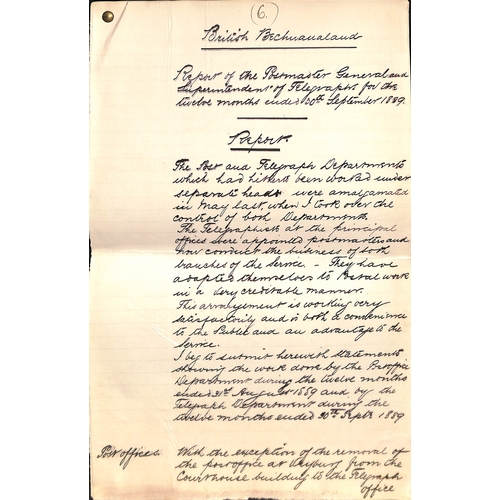 (6.)
British Bechuanaland
Report of the Postmaster General and
Superintendent of Telegraphs for the
twelve months ended 30th September 1889.
Report.
The Post and Telegraph Departments
which had hitherto been worked under
separate heads were amalgamated
in May last, when I took over the
control of both Departments.
The Telegraphists at the principal
offices were appointed postmasters and
now conduct the business of both
branches of the Service - They have
adapted themselves to Postal work
in a very creditable manner.
This arrangement is working very
satisfactorily and is both a convenience
to the Public and an advantage to the
Service.
I beg to submit herewith statements
showing the work done by the Post office
Department during the twelve months
ended 31st August 1889 and by the
Telegraph Department during the
twelve months ended 30th Septr 1889
Post offices. With the exception of the removal of
the post office at Vryburg from the
Courthouse building to the Telegraph
office